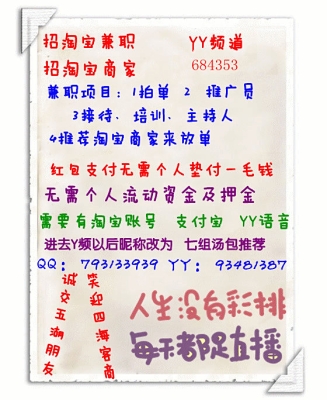 招淘宝兼职 YY频道
招淘宝商家 684353
兼职项目：1拍单 2 推广员
3接待、培训、主持人
4推荐淘宝商家来放单
红包支付无需个人垫付一毛钱
无需个人流动资金及押金
需要有淘宝账号 支付宝 YY语音
进去Y频以后昵称改为 七组汤包推荐
QQ：793133939 YY：93481387
诚交五湖朋友
笑迎四海客商
人生没有彩排
每天都是直播